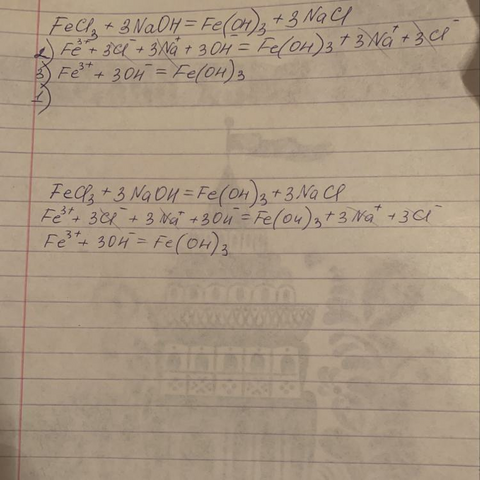 FeCl₃ + 3NaOH = Fe(OH)₃ + 3NaCl
2) Fe³⁺ + 3Cl⁻ + 3Na⁺ + 3OH⁻ = Fe(OH)₃ + 3Na⁺ + 3Cl⁻
3) Fe³⁺ + 3OH⁻ = Fe(OH)₃
1)
FeCl₃ + 3NaOH = Fe(OH)₃ + 3NaCl
Fe³⁺ + 3Cl⁻ + 3Na⁺ + 3OH⁻ = Fe(OH)₃ + 3Na⁺ + 3Cl⁻
Fe³⁺ + 3OH⁻ = Fe(OH)₃